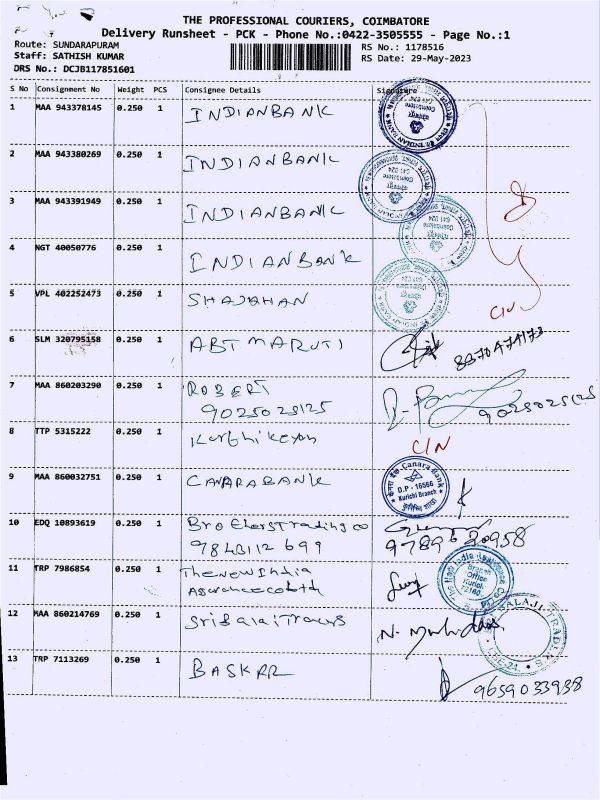 THE PROFESSIONAL COURIERS, COIMBATORE
Delivery Runsheet - PCK - Phone No.:0422-3505555 - Page No.:1
Route: SUNDARAPURAM
RS No.: 1178516
Staff: SATHISH KUMAR
RS Date: 29-May-2023
DRS No.: DCJB117851601
S No Consignment No Weight PCS Consignee Details Signature
1 MAA 943378145 0.250 1 INDIANBANK
2 MAA 943380269 0.250 1 INDIANBANK
3 MAA 943391949 0.250 1 INDIANBANK
4 NGT 40050776 0.250 1 INDIANBANK
5 VPL 402252473 0.250 1 SHAJAHAN
6 SLM 320795158 0.250 1 ABT MARUTI 8870474173
7 MAA 860203290 0.250 1 ROBERT
9025025125 9025025125
8 TTP 5315222 0.250 1 Karthikeyan
9 MAA 860032751 0.250 1 CANARABANK
Canara Bank
D.P - 16566
Kurichi Branch
10 EDQ 10893619 0.250 1 Brothers Trading co
9843112 699
11 TRP 7986854 0.250 1 The New India
Assurance co Ltd
The New India Assurance
Branch
Office
12 MAA 860214769 0.250 1 Sri Balaji Traders
13 TRP 7113269 0.250 1 BASKAR 9659033938